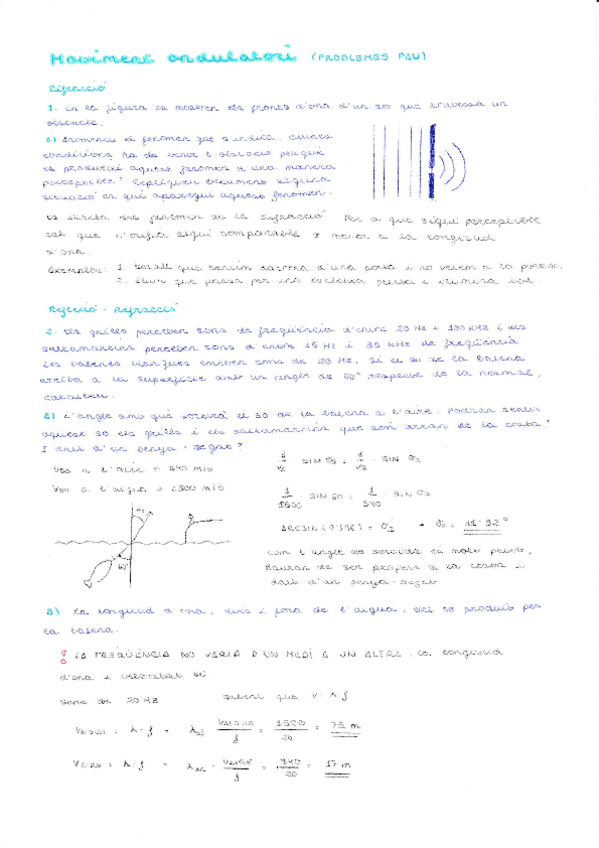 Moviment ondulatori (PROBLEMES PAU)
Difracció
1. En la figura es mostren els fronts d'ona d'un so que travessa un
obstacle.
a) Anomeneu el fenomen que s'indica. Quines
condicions ha de tenir l'obstacle perquè
es produeixi aquest fenomen d'una manera
perceptible? Expliqueu breument alguna
situació en què aparegui aquest fenomen.
Es tracta del fenomen de la difracció. Per a que sigui perceptible
cal que l'orifici sigui comparable o menor a la longitud
d'ona.
Exemples: 1. Soroll que sentim darrera d'una porta i no veiem a la porta.
2. Llum que passa per una escletxa i
Reflexió - Refracció
2. Els grills perceben sons de freqüència d'entre 20 Hz i 100 kHz i els
saltamartins perceben sons d'entre 15 Hz i 35 kHz de freqüència.
Les balenes blanques emeten sons de 20 Hz. Si el so de la balena
arriba a la superfície amb un angle de 60° respecte de la normal,
calculeu:
a) L'angle amb què sortirà el so de la balena a l'aire. Podran sentir
aquest so els grills i els saltamartins que són arran de la costa?
I dalt d'un penya-segat?
Vso a l'aire = 340 m/s
Vso a l'aigua = 1500 m/s
1/V1 · SIN θ1 = 1/V2 · SIN θ2
1/1500 · SIN 60 = 1/340 · SIN θ2
ARCSIN (0'196) = θ2 → θ2 = 11'32°
Com l'angle de sortida és molt petit,
hauran de ser propers a la costa i
dalt d'un penya-segat
b) La longitud d'ona, dins i fora de l'aigua, del so produït per
la balena.
LA FREQÜÈNCIA NO VARIA D'UN MEDI A UN ALTRE, la longitud
d'ona i velocitat sí.
Sons de 20 Hz sabent que v = λ·f
V = λ · f → λ = V/f = 1500/20 = 75 m
V = λ · f → λ = V/f = 340/20 = 17 m